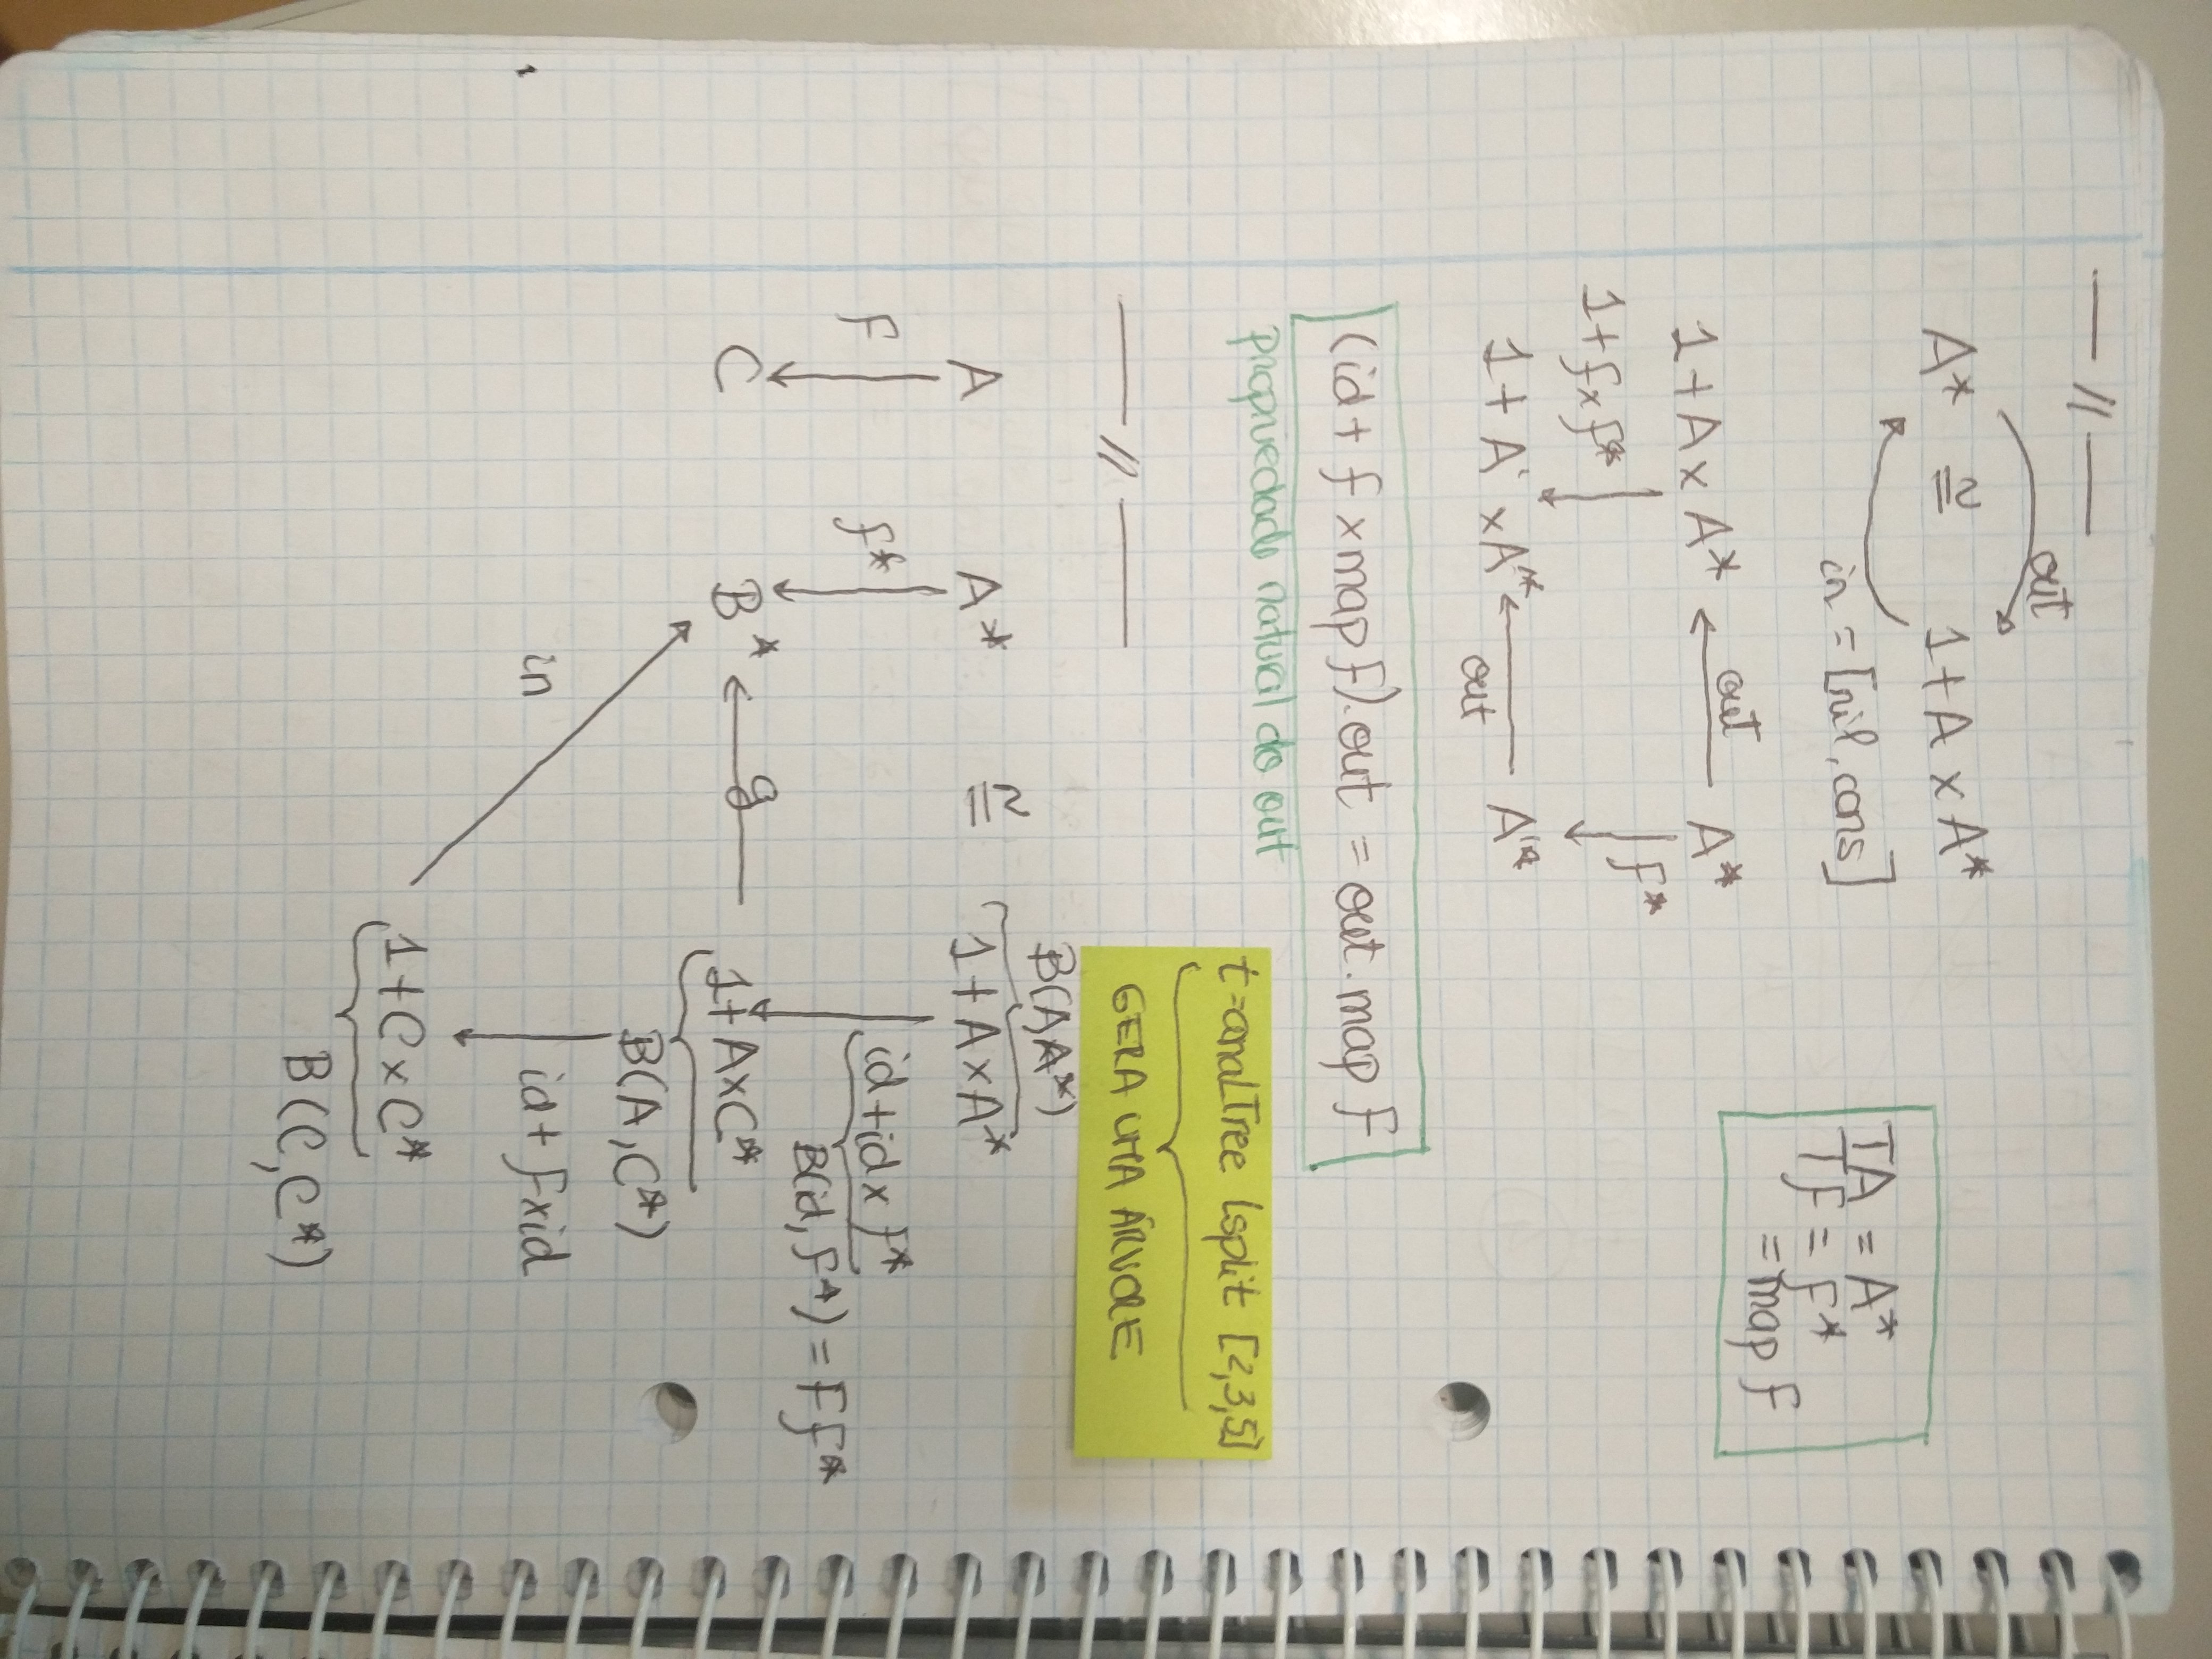 — // —
out
A* ≅ 1+A×A*
in = [nil, cons]
TA = A*
Tf = f*
= map f
1+A×A* ← out A*
1+f×f* ↓ ↓ f*
1+A'×A'* ← A'*
out
(id+f×map f).out = out.map f
propriedade natural do out
t=anaLTree lsplit [2,3,5]
GERA UMA ÁRVORE
— // —
B(A,A*)
A A* ≅ 1+A×A*
f f* id+id×f*
B(id,f*) = Ff*
C B* ← g 1+A×C*
B(A,C*)
in id+f×id
1+C×C*
B(C,C*)